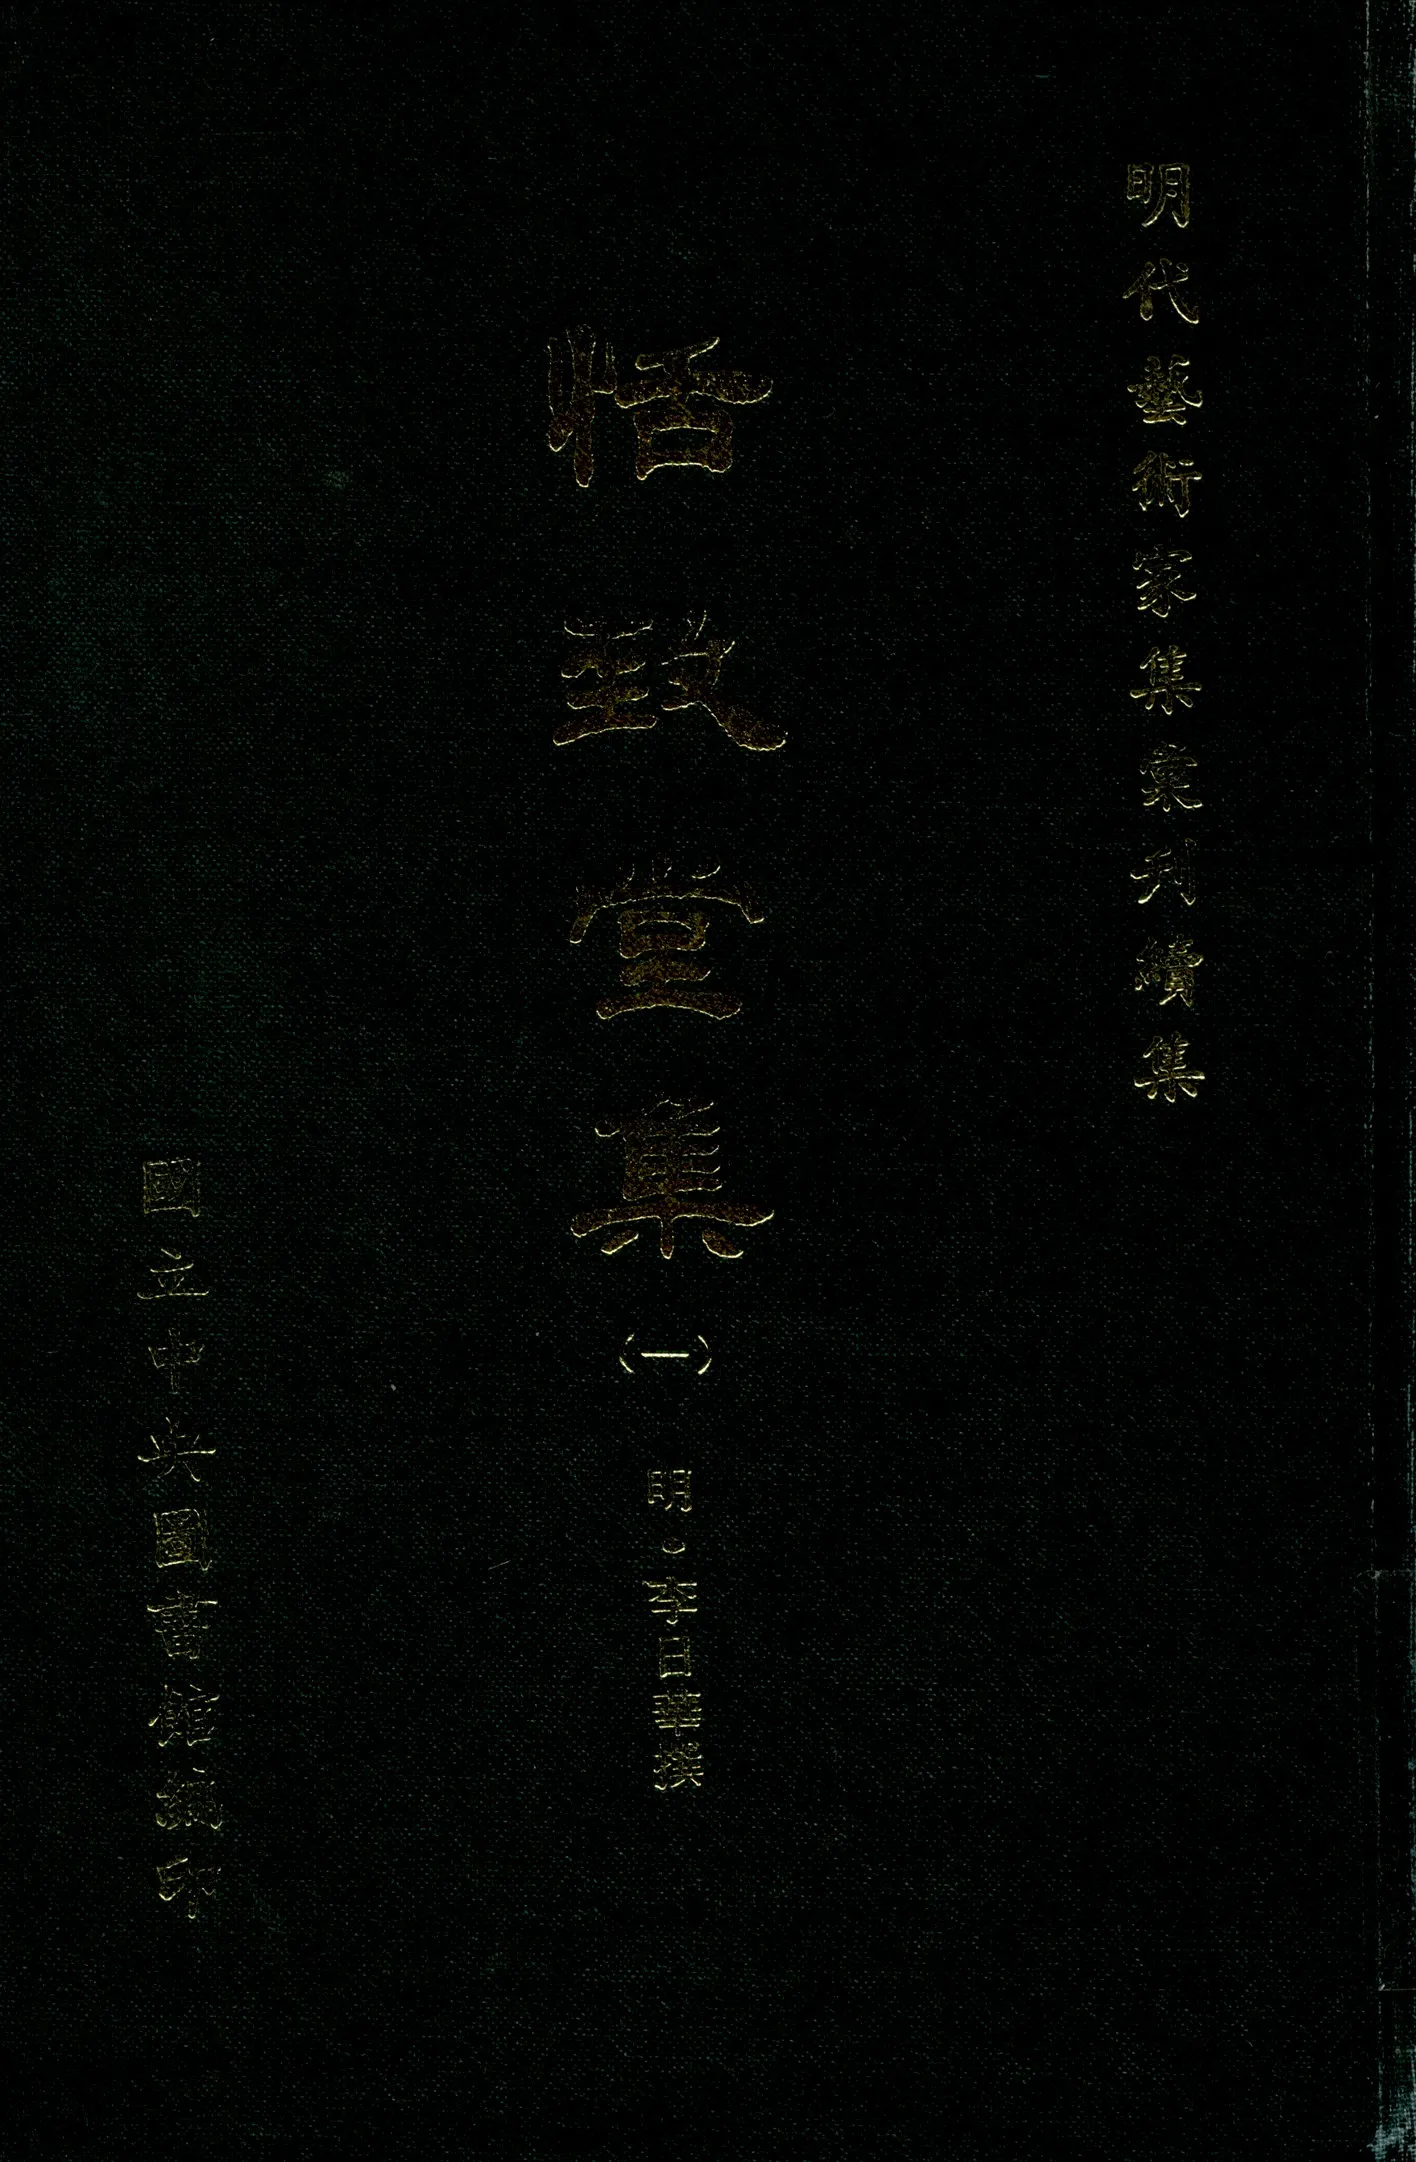 明代藝術家集彙刊續集
恬致堂集(一) 明。李日華撰
國立中央圖書館編印